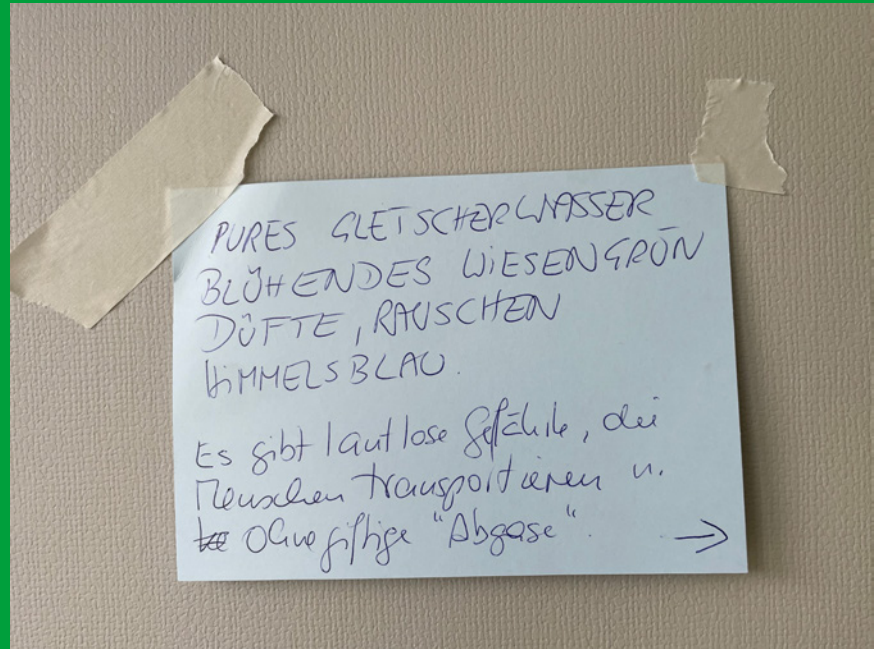 PURES GLETSCHERWASSER
BLÜHENDES WIESENGRÜN
DÜFTE, RAUSCHEN
HIMMELSBLAU.
Es gibt lautlose Gefährte, die
Menschen transportieren u.
ohne giftige "Abgase". →